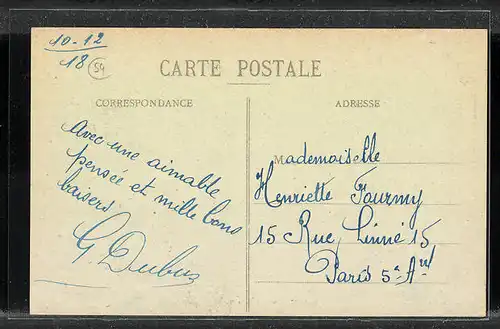 10-12
18
54
CARTE POSTALE
CORRESPONDANCE
ADRESSE
Avec une aimable
pensée et mille bons
baisers
G Dubus
Mademoiselle
Henriette Fourmy
15 Rue Linné 15
Paris 5e Arrt